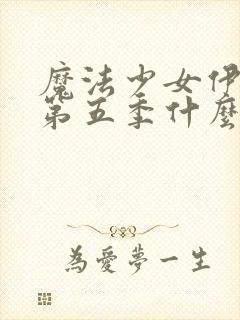 魔法少女伊
第五季什麼
為愛夢一生